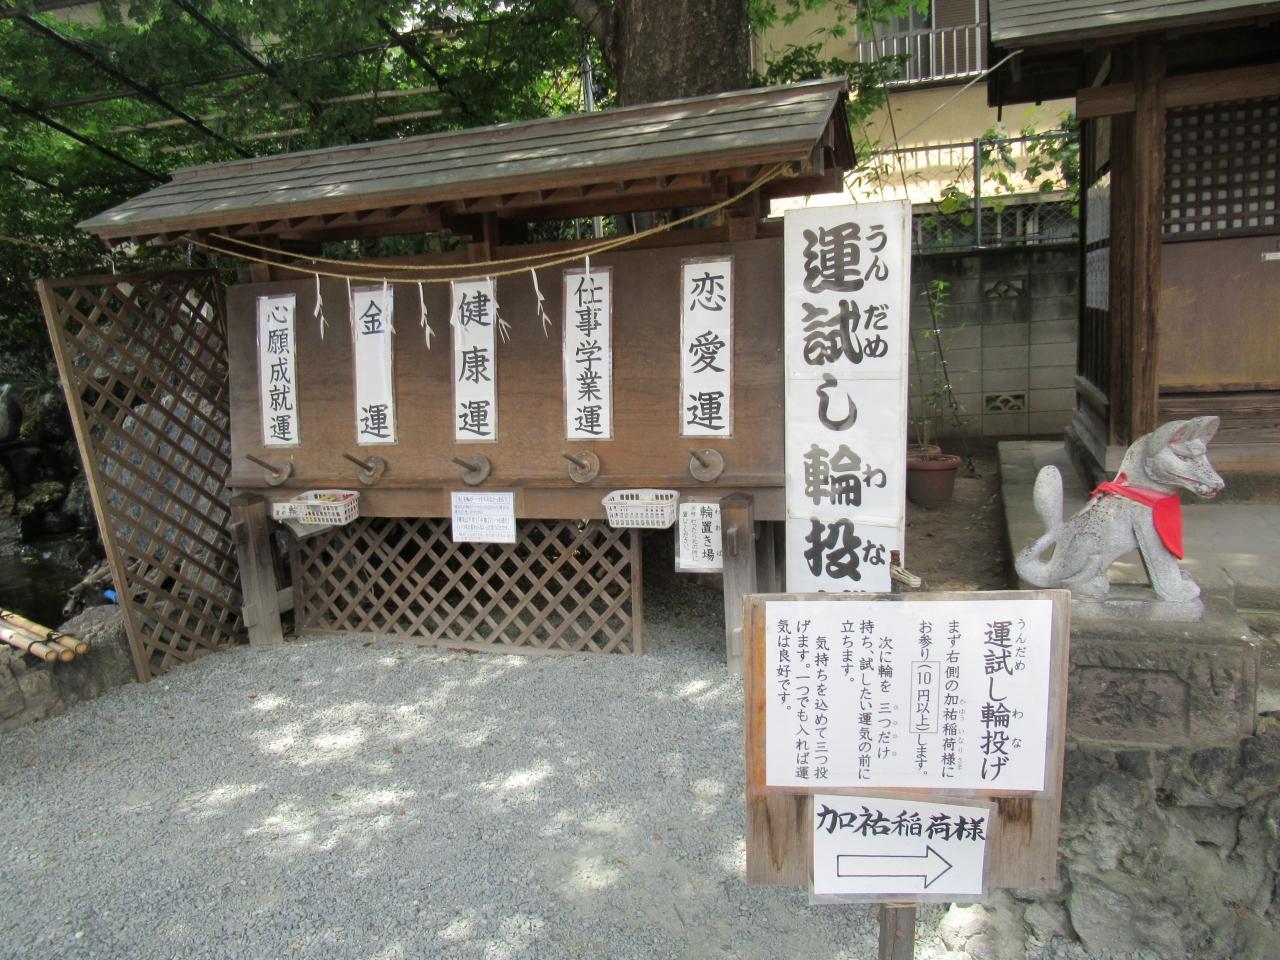 心願成就運
金運
健康運
仕事学業運
恋愛運
運試し輪投
うんだめ わな
輪置き場
わおば
うんだめ わな
運試し輪投げ
まず右側の加祐稲荷様に
かゆういなりさま
お参り(10円以上)します。
次に輪を三つだけ
持ち、試したい運気の前に
立ちます。
気持ちを込めて三つ投
げます。一つでも入れば運
気は良好です。
加祐稲荷様